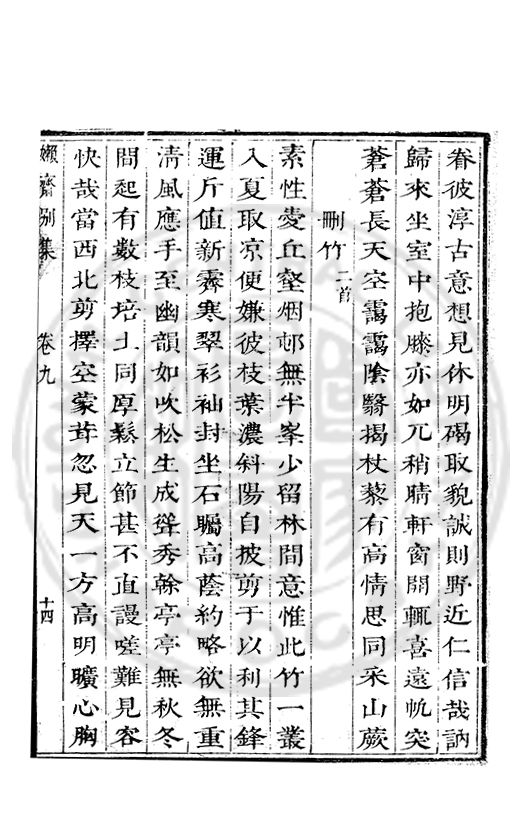 眷彼淳古意想見休明碣取貌誠則野近仁信哉訥
歸來坐室中抱膝亦如兀稍晴軒窗開輒喜遠帆突
蒼蒼長天空靄靄陰翳揭杖藜有高情思同采山蕨
刪竹二首
素性愛丘壑烟邨無半峯少留林間意惟此竹一叢
入夏取凉便嫌彼枝葉濃斜陽自披剪于以利其鋒
運斤值新霽寒翠衫袖封坐石矚高蔭約略欲無重
淸風應手至幽韻如吹松生成聳秀榦亭亭無秋冬
間起有數枝培土同厚鬆立節甚不直謾嗟難見容
快哉當西北剪擇空蒙茸忽見天一方高明曠心胸
嬾齋別集
卷九
十四